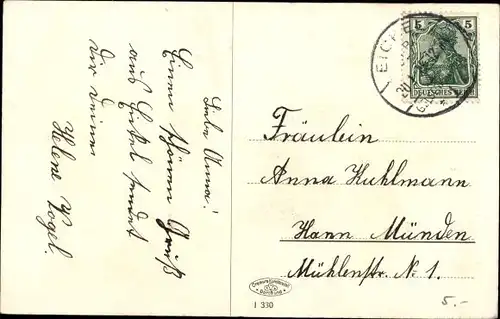 Liebe Anna!
Einen schönen Gruß
aus Eickel sendet
dir deine
Helene Vogel.
5 5
DEUTSCHES REICH
EICKEL
Fräulein
Anna Kuhlmann
Hann Münden
Mühlenstr. N. 1.
I 330
5.-